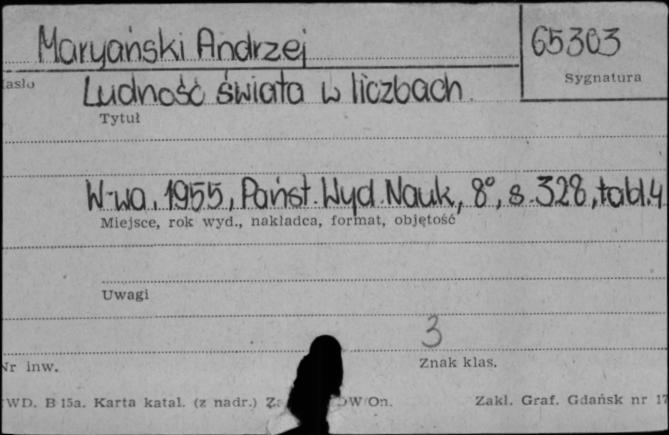 Maryański Andrzej
65303
Sygnatura
Hasło
Ludność świata w liczbach
Tytuł
W-wa, 1955, Państ. Wyd. Nauk, 8°, s. 328, tabl. 4
Miejsce, rok wyd., nakładca, format, objętość
Uwagi
3
Nr inw.
Znak klas.
WD. B 15a. Karta katal. (z nadr.) On. Zakł. Graf. Gdańsk nr 17